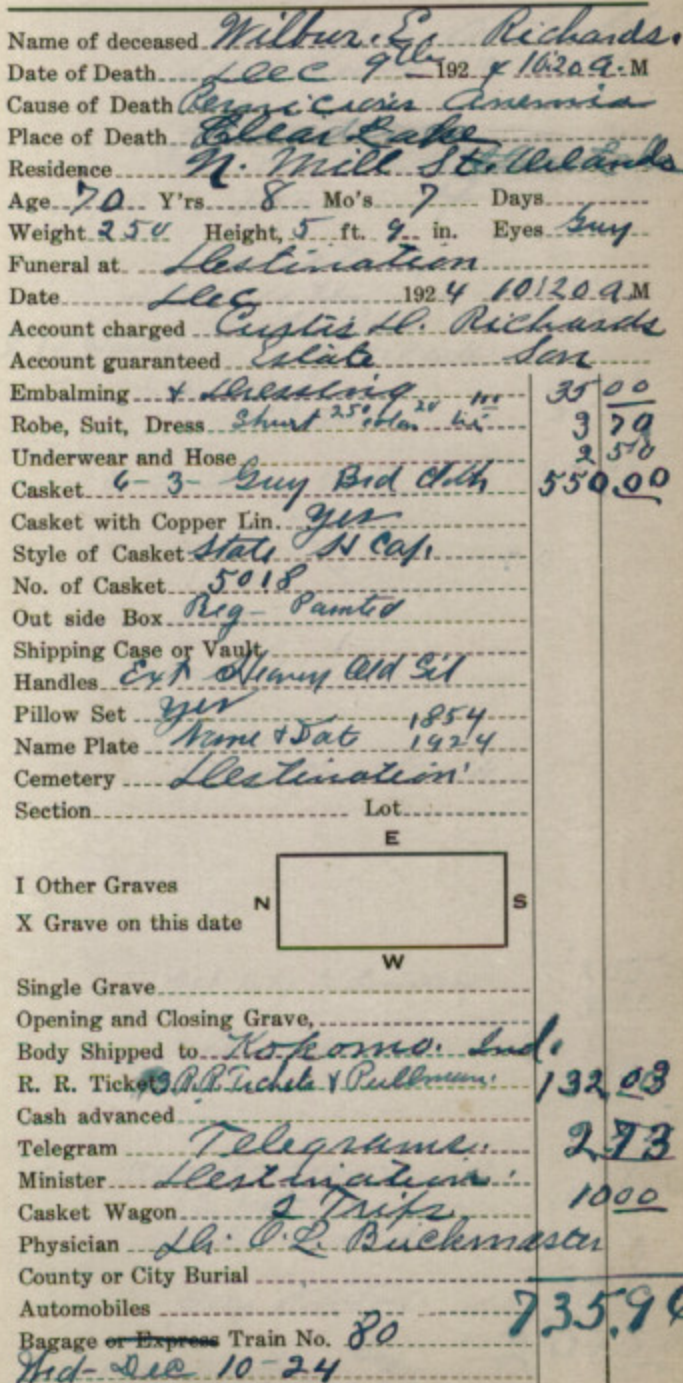 Name of deceased Wilbur. E. Richards.
Date of Death Dec 9th 1924 10:20 a. M
Cause of Death Pernicious Anemia
Place of Death Clear Lake
Residence N. Mill St. Orlando
Age 70 Y'rs 8 Mo's 7 Days
Weight 250 Height, 5 ft. 9 in. Eyes Gray
Funeral at Destination
Date Dec 1924 10:20 a M
Account charged Curtis D. Richards
Account guaranteed Estate Son
Embalming & Dressing 35 00
Robe, Suit, Dress Shirt 250 Colar 20 tie 100 3 70
Underwear and Hose 2 50
Casket 6-3- Gray Brd Cloth 550.00
Casket with Copper Lin. yes
Style of Casket State H Cap.
No. of Casket 5018
Out side Box Reg- Painted
Shipping Case or Vault
Handles Ext Heavy Old Sil
Pillow Set yes 1854
Name Plate Name & Date 1924
Cemetery Destination
Section Lot
E
I Other Graves
N S
X Grave on this date
W
Single Grave
Opening and Closing Grave,
Body Shipped to Kokomo. Ind.
R. R. Ticket 3 R.R. Tickets & Pullman. 132.03
Cash advanced
Telegram Telegrams. 2.73
Minister Destination.
Casket Wagon 2 Trips 10 00
Physician Dr. O. L. Buckmaster
County or City Burial
Automobiles 735.96
Bagage or Express Train No. 80
Wed- Dec 10-24